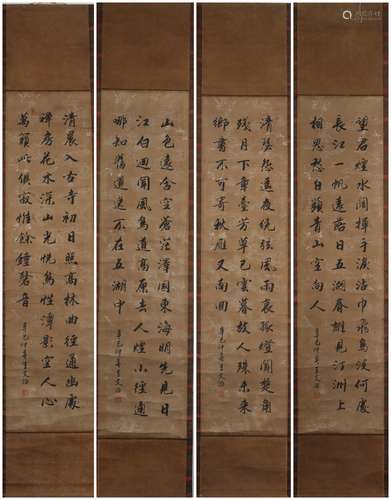 望君煙水闊揮手淚沾巾飛鳥沒何處
長江一帆遠落日五湖春誰見汀洲上
相思愁白蘋青山空向人
辛巳仲春王文治
清瑟怨遙夜繞弦風雨哀孤燈聞楚角
殘月下章臺芳草已雲暮故人殊未來
鄉書不可寄秋雁又南回
山色遠含空蒼茫澤國東海明先見日
江白迥聞風鳥道高原去人煙小徑通
哪知舊遺逸不在五湖中
辛巳仲春王文治
清晨入古寺初日照高林曲徑通幽處
禪房花木深山光悅鳥性潭影空人心
萬籟此俱寂惟餘鐘磬音
辛巳仲春王文治